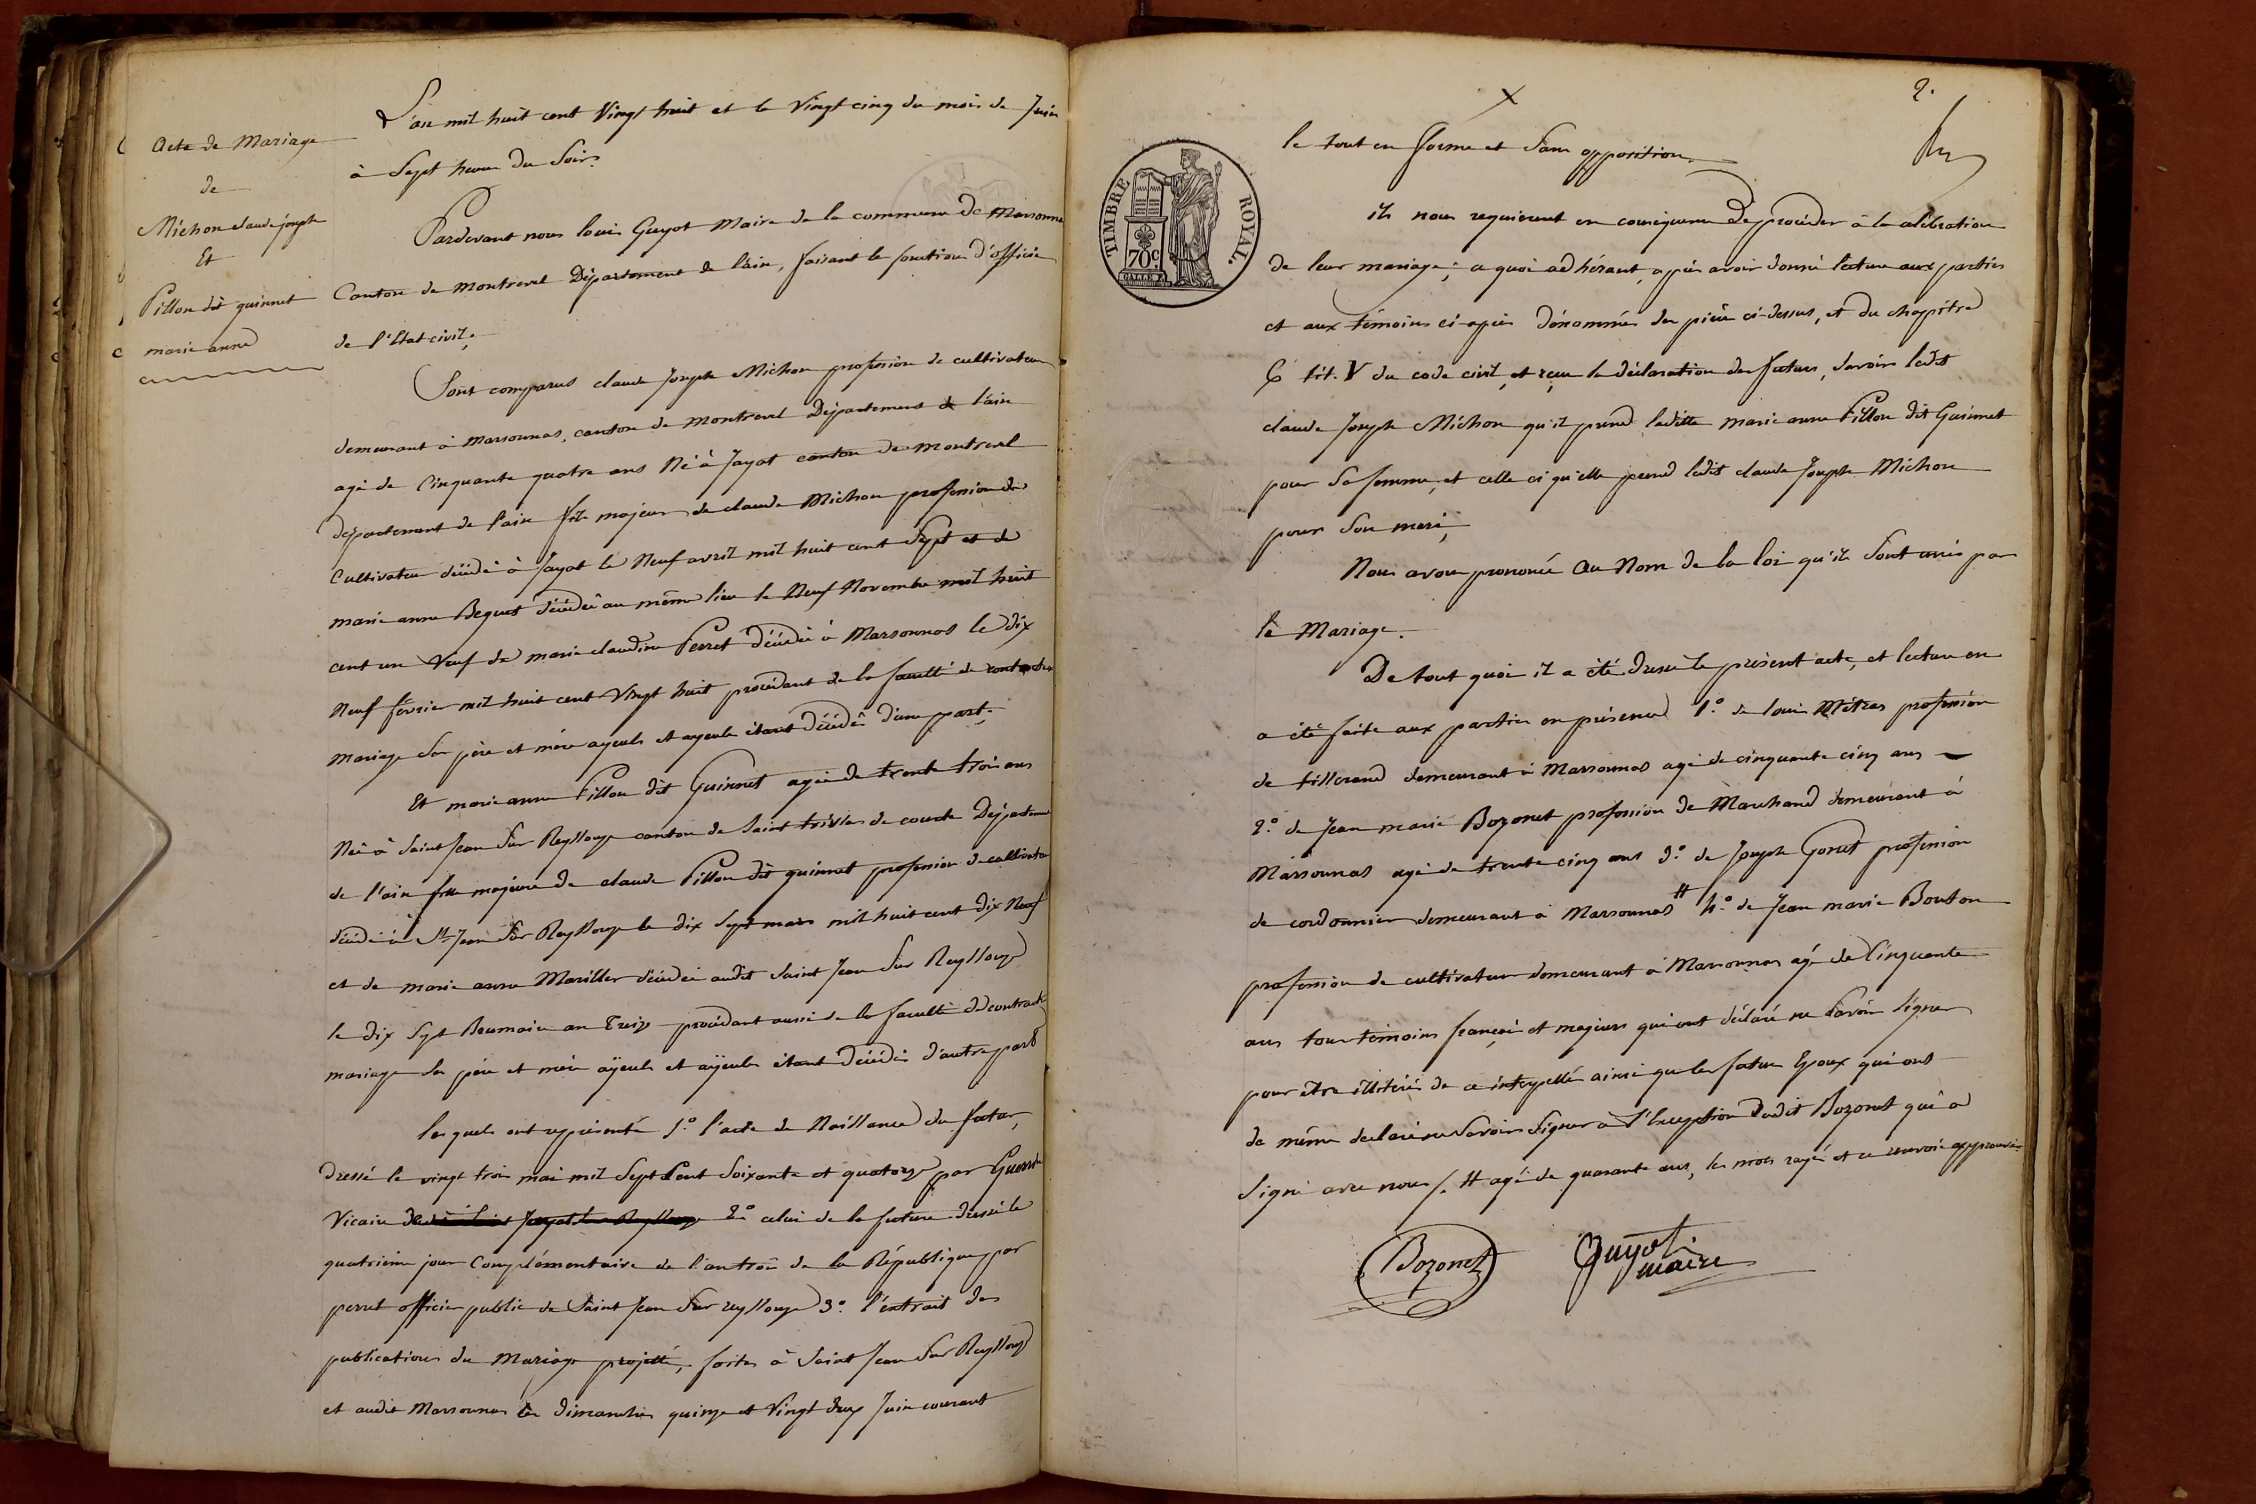 Acte de Mariage
de
Michon claude joseph
Et
Pillon dit guinnet
marie anne
L'an mil huit cent Vingt huit et le Vingt cinq du mois de Juin
à Sept heures du Soir.
Pardevant nous louis Guyot Maire de la commune de Marsonnas
Canton de montrevel Département de l'ain, faisant les fonctions d'officier
de l'Etat civil;
Sont comparus claude Joseph Michon profession de cultivateur
demeurant à marsonnas, canton de montrevel Département de l'ain
agé de Cinquante quatre ans Né à Jayat canton de montrevel
département de l'ain fils majeur de claude Michon profession de
Cultivateur décédé à Jayat le Neuf avril mil huit cent Sept et de
marie anne Beguet décédée au même lieu le Neuf Novembre mil huit
cent un Veuf de marie claudine Perret décédée à Marsonnas le dix
Neuf février mil huit cent Vingt huit procédant de la faculté de contracter
mariage Ses père et mère ayeuls et ayeules étant décédés d'une part.
Et marie anne Pillon dit Guinnet agée de trente trois ans
Née à Saint Jean Sur Reyssouze canton de Saint trivier de courte Département
de l'ain fille majeure de claude Pillon dit guinnet profession de cultivateur
décédé à St. Jean Sur Reyssouze le dix Sept mars mil huit cent dix Neuf
et de marie anne Mariller décédée audit Saint Jean Sur Reyssouze
le dix Sept Brumaire an Treize procédant aussi de la faculté de contracter
mariage Ses père et mère ayeuls et ayeules étant décédés d'autre part
lesquels ont représenté 1.º l'acte de Naissance du futur,
dressé le vingt trois mai mil Sept Cent Soixante et quatorze par
Vicaire 2.º celui de la future dressé le
quatrième jour Complémentaire de l'an trois de la République par
perret officier public de Saint Jean Sur reyssouze 3.º l'extrait des
publications du Mariage projetté, faites à Saint Jean Sur Reyssouze
et audit Marsonnas les dimanches quinze et Vingt deux Juin courant
2.
TIMBRE ROYAL.
70c
le tout en forme et Sans opposition.
ils nous requierent en conséquence de procéder à la célébration
de leur mariage; a quoi adhérant, après avoir donné lecture aux parties
et aux témoins ci-après dénommés des pièces ci-dessus, et du chapitre
6 tit. V du code civil, et reçu la déclaration des futurs, Savoir ledit
claude Joseph Michon qu'il prend laditte marie anne Pillon dit Guinnet
pour Sa femme, et celle ci qu'elle prend ledit claude Joseph Michon
pour Son mari,
Nous avons prononcé Au Nom de la loi qu'ils Sont unis par
le Mariage.
De tout quoi il a été dressé le présent acte, et lecture en
a été faite aux parties en présence 1.º de louis profession
de tisserand demeurant à Marsonnas agé de cinquante cinq ans
2.º de Jean marie Bozonet profession de Marchand demeurant à
Marsonnas agé de trente cinq ans 3.º de Joseph Gonet profession
de cordonnier demeurant à Marsonnas # 4.º de Jean marie Bouton
profession de cultivateur demeurant à Marsonnas agé de Cinquante
ans tous témoins français et majeurs qui ont déclaré ne Savoir Signer
pour être illitérés de ce interpellés ainsi que les futurs Epoux qui ont
de même déclaré ne Savoir Signer à l'Exception dudit Bozonet qui a
Signé avec nous /. # agé de quarante ans, les mots rayés et ce renvoi approuvés
Bozonet
Guyot
maire